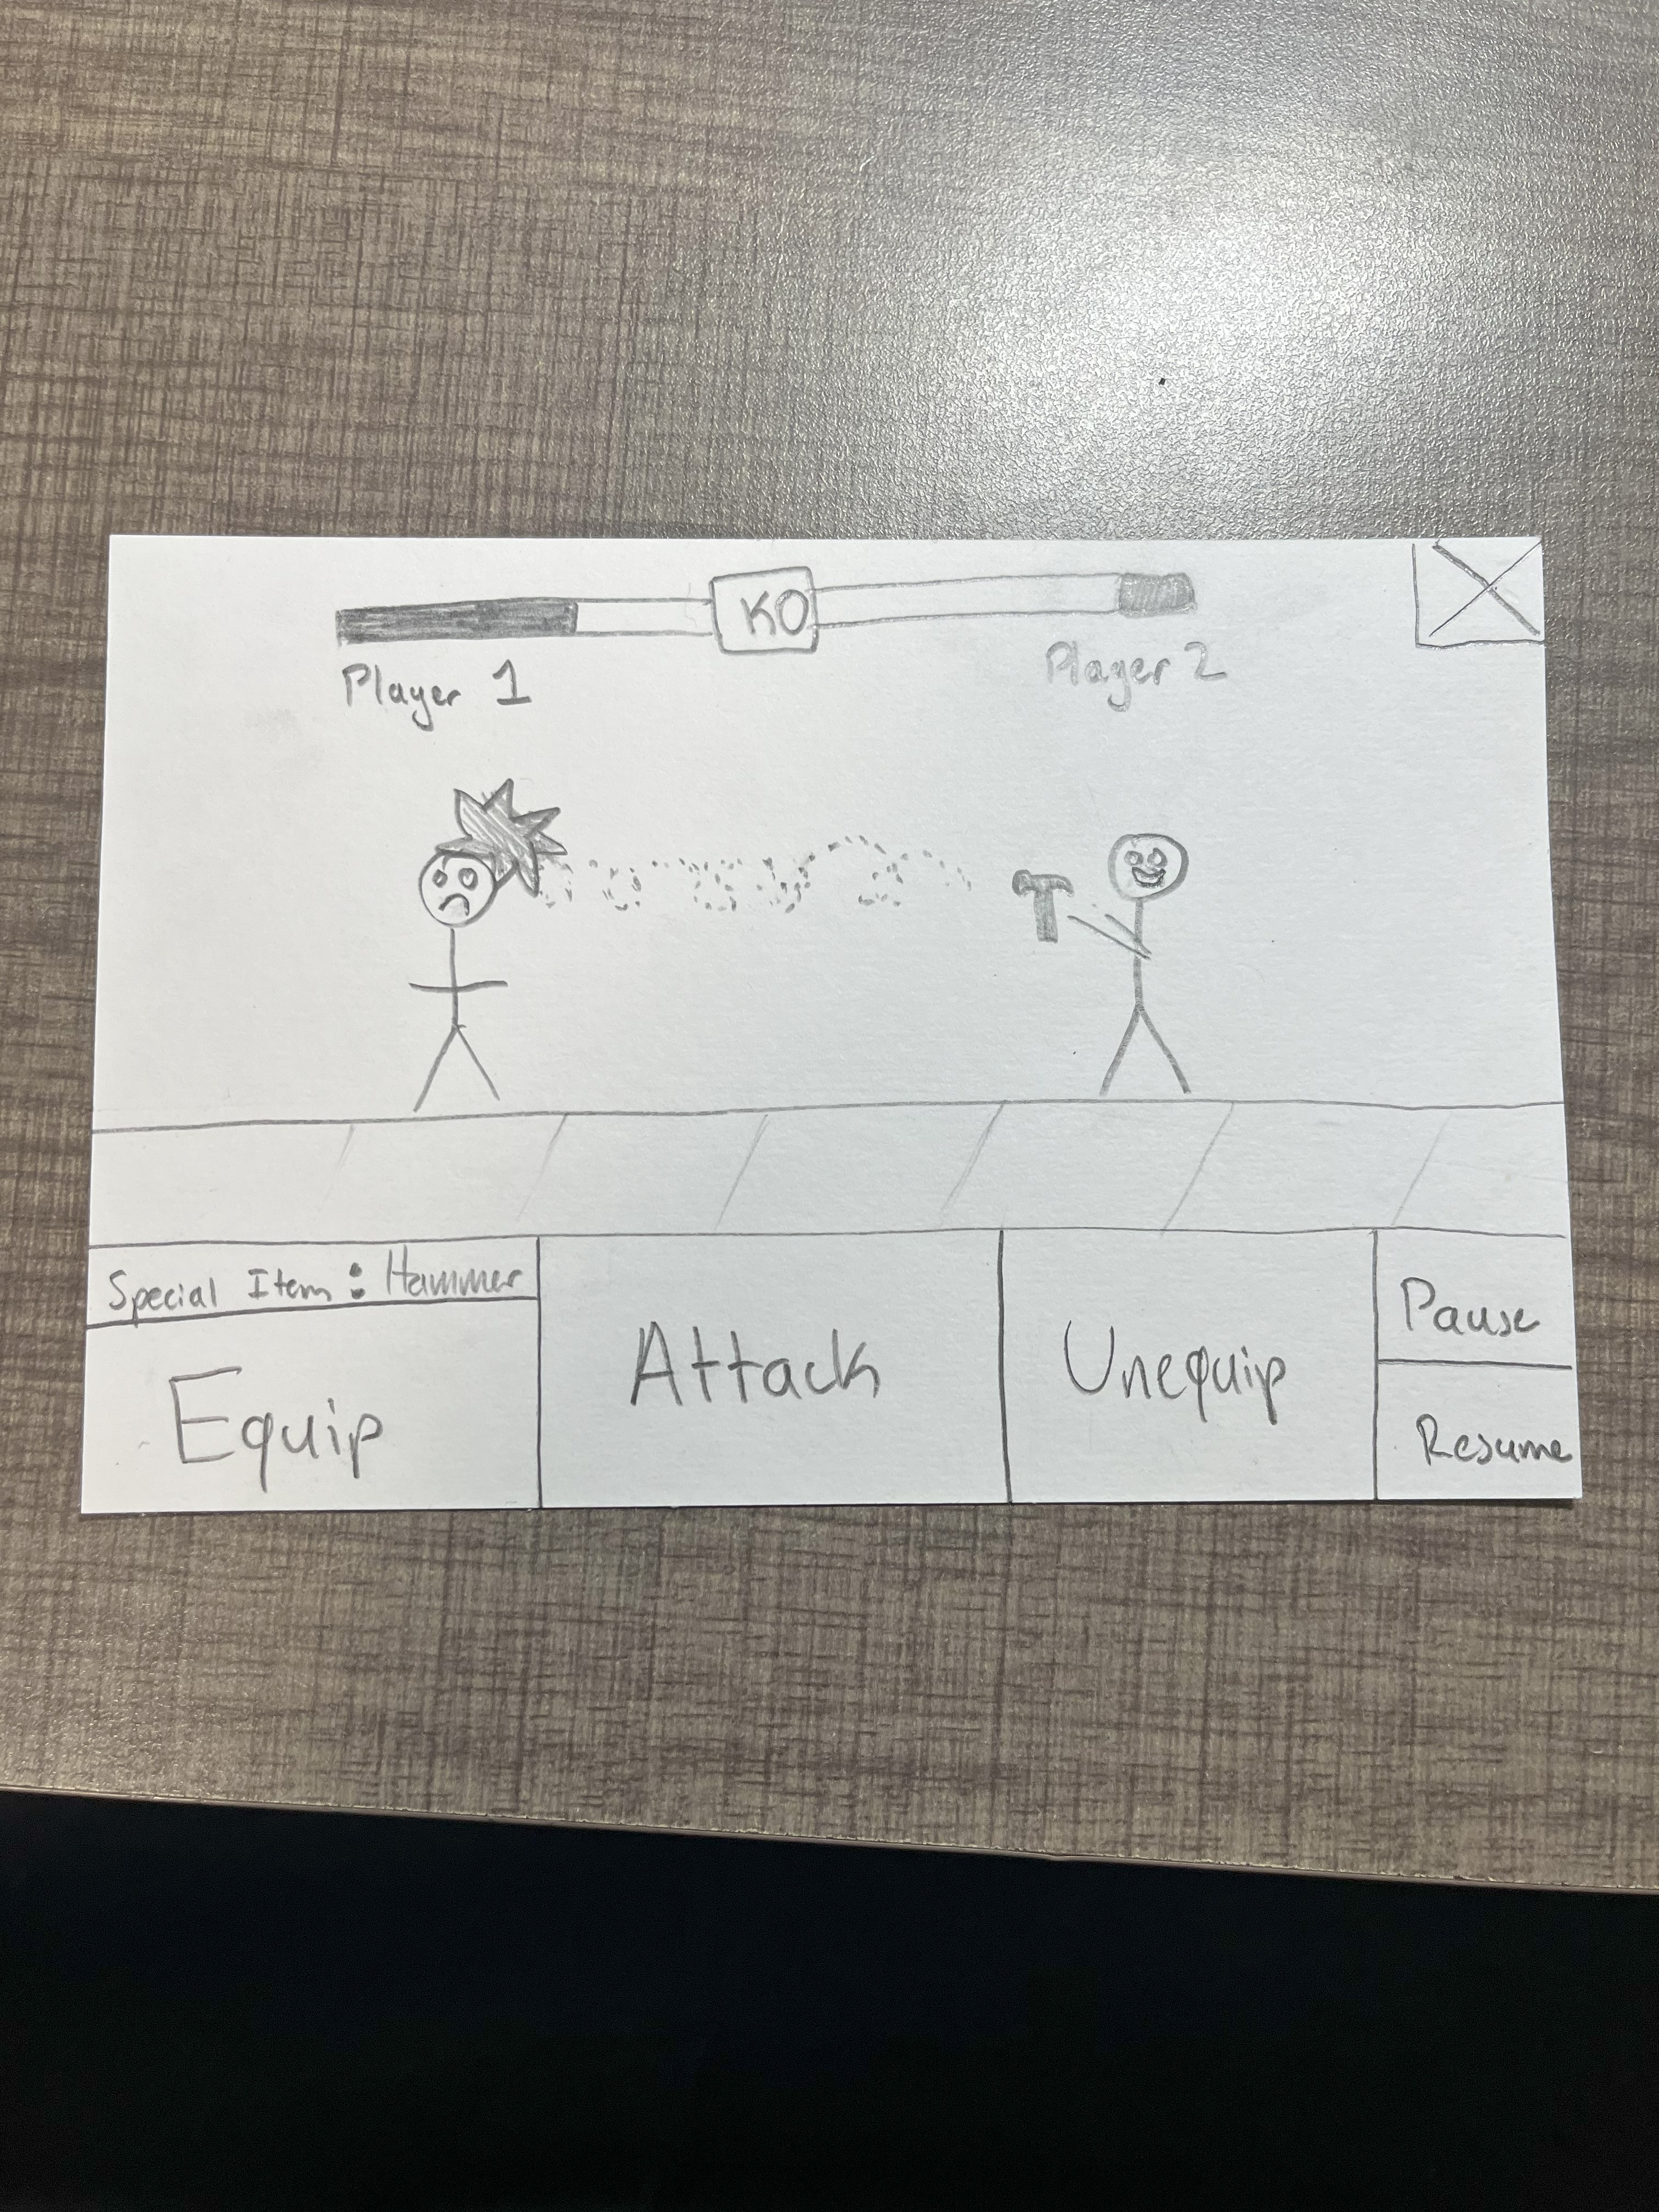 KO
Player 1
Player 2
Special Item: Hammer
Equip
Attack
Unequip
Pause
Resume